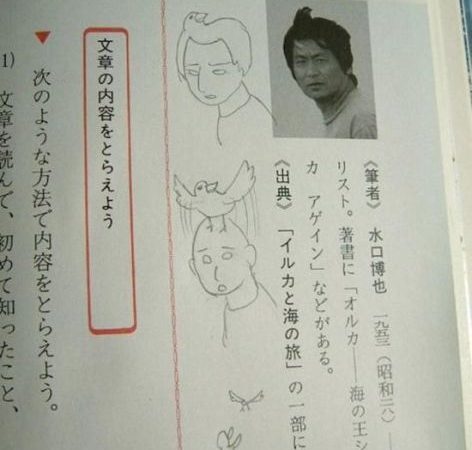 《筆者》 水口博也 一九五三(昭和二八)―
リスト。著書に「オルカ――海の王シ
カ アゲイン」などがある。
《出典》 「イルカと海の旅」の一部に
文章の内容をとらえよう
▼ 次のような方法で内容をとらえよう。
1) 文章を読んで、初めて知ったこと、